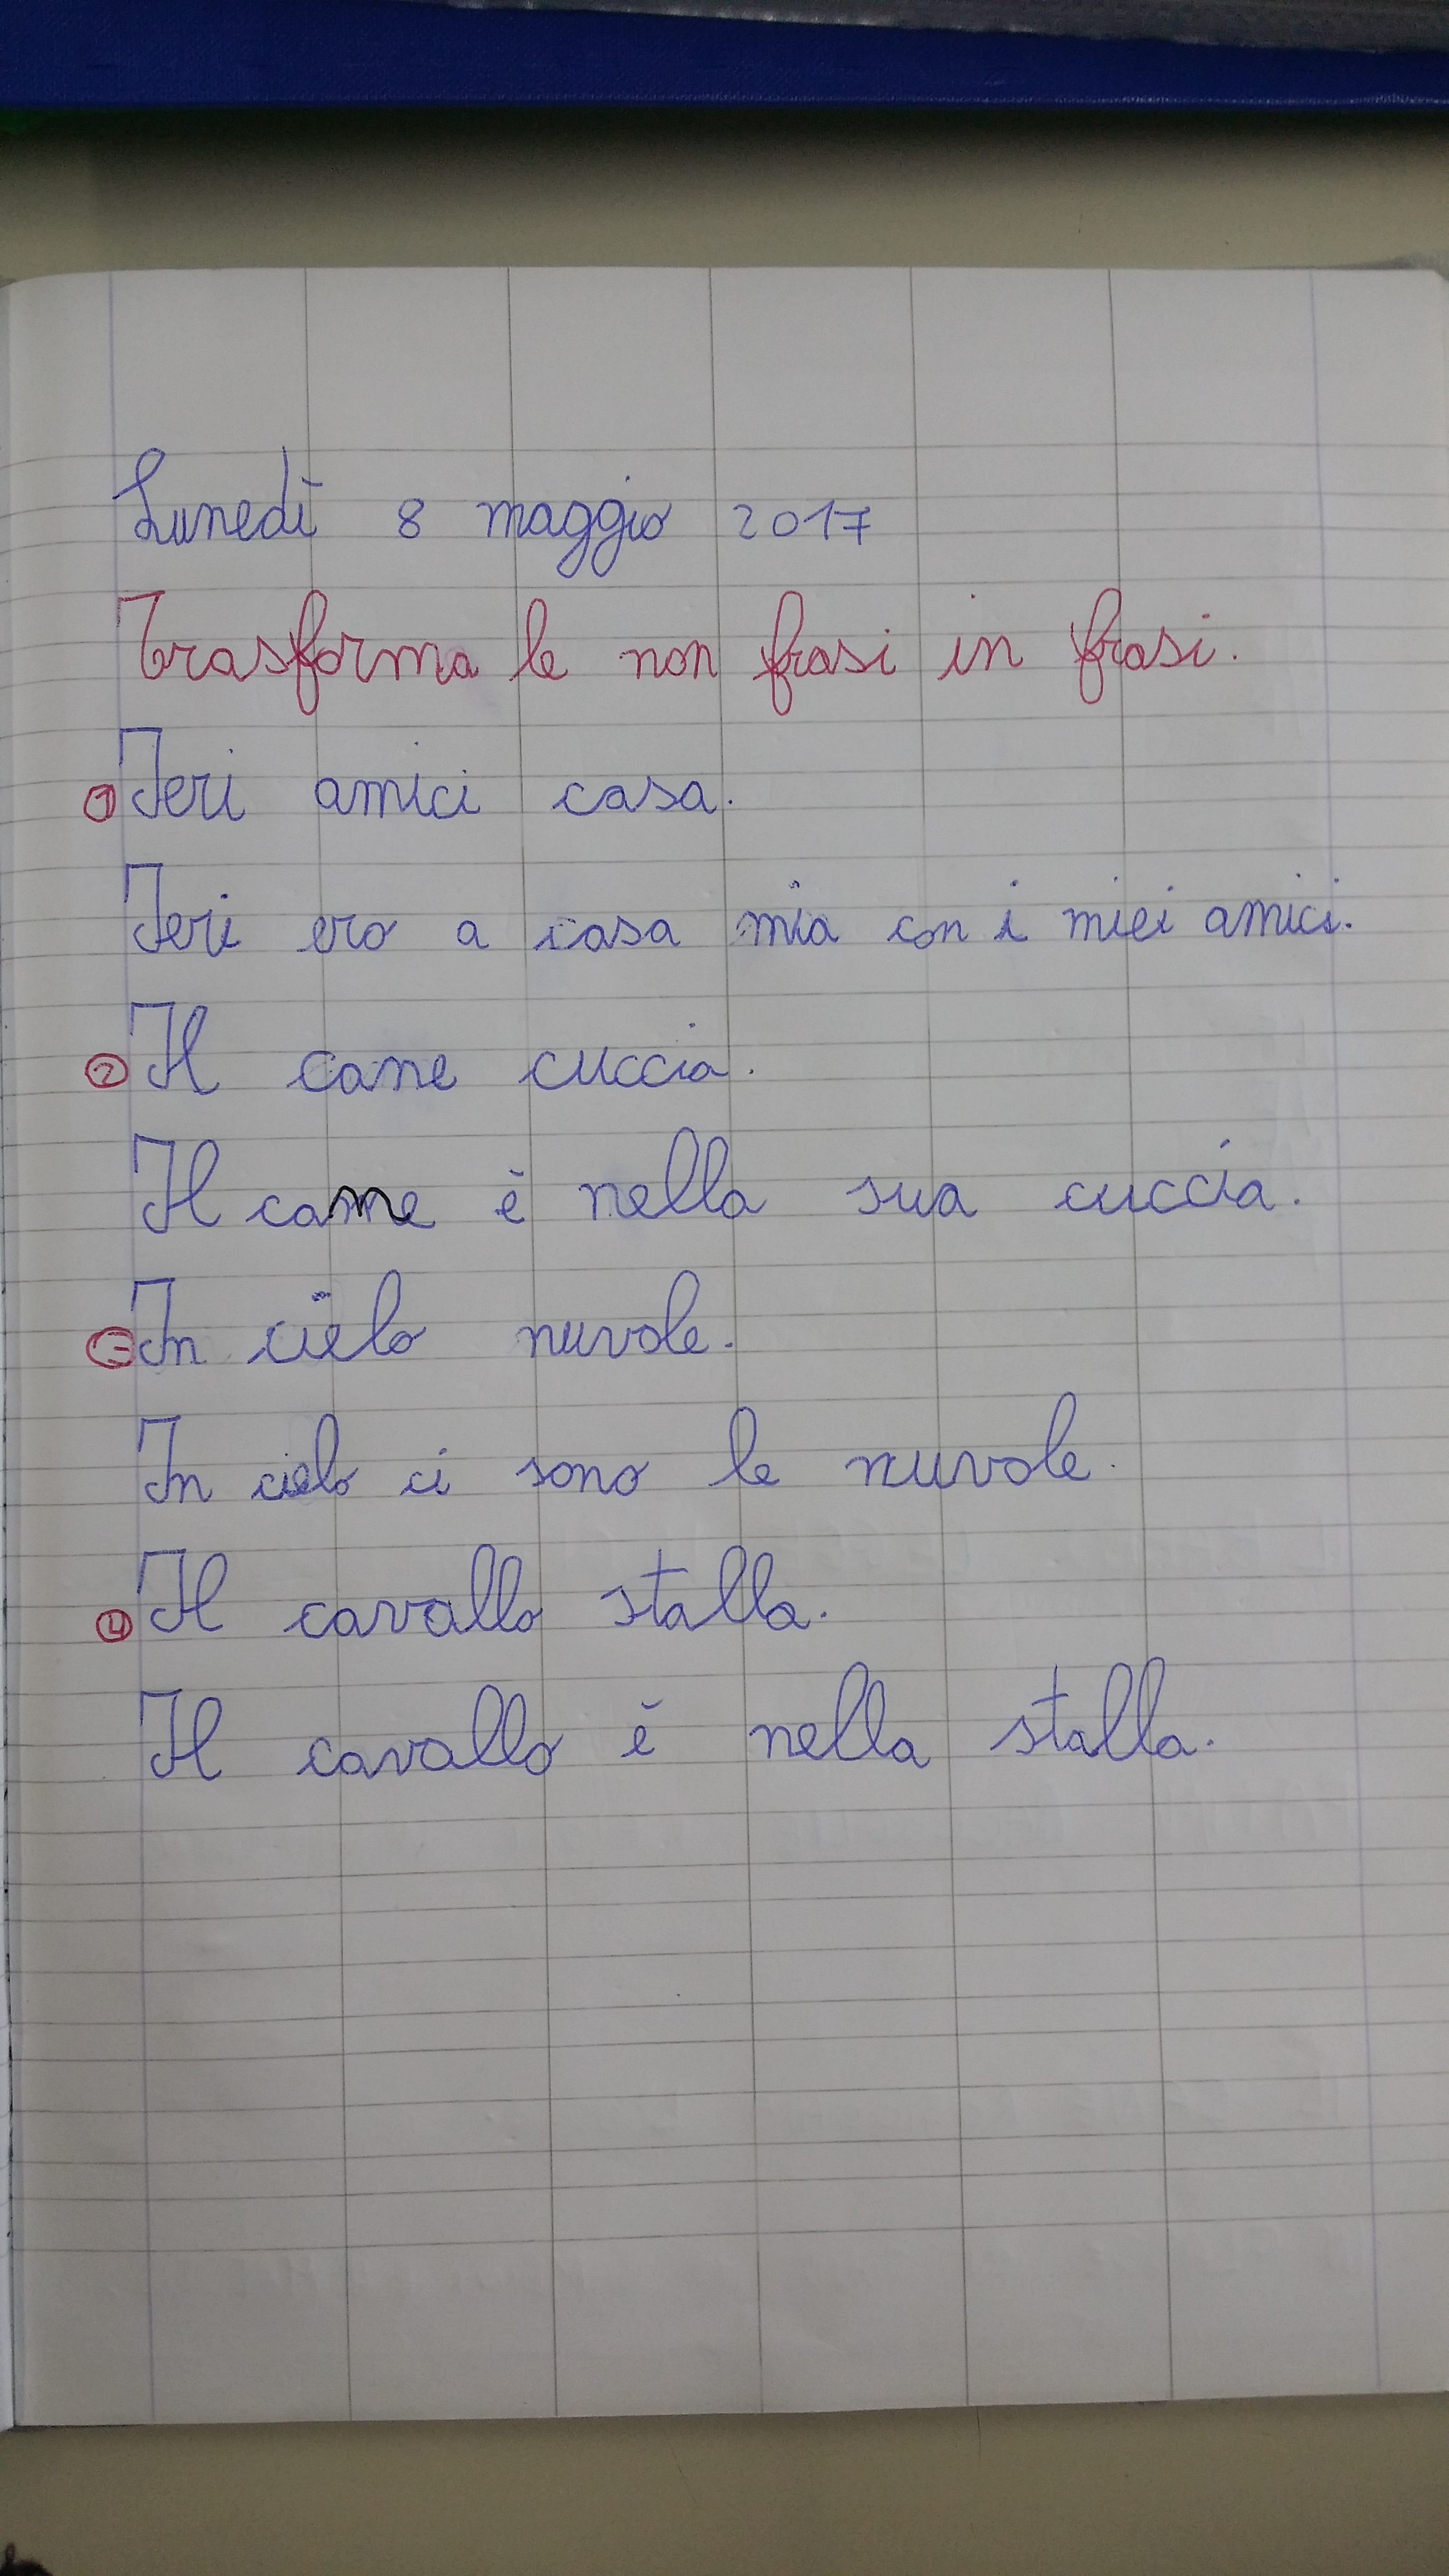 Lunedì 8 maggio 2017
Trasforma le non frasi in frasi.
① Ieri amici casa.
Ieri ero a casa mia con i miei amici.
② Il cane cuccia.
Il cane è nella sua cuccia.
In cielo nuvole.
In cielo ci sono le nuvole.
④ Il cavallo stalla.
Il cavallo è nella stalla.